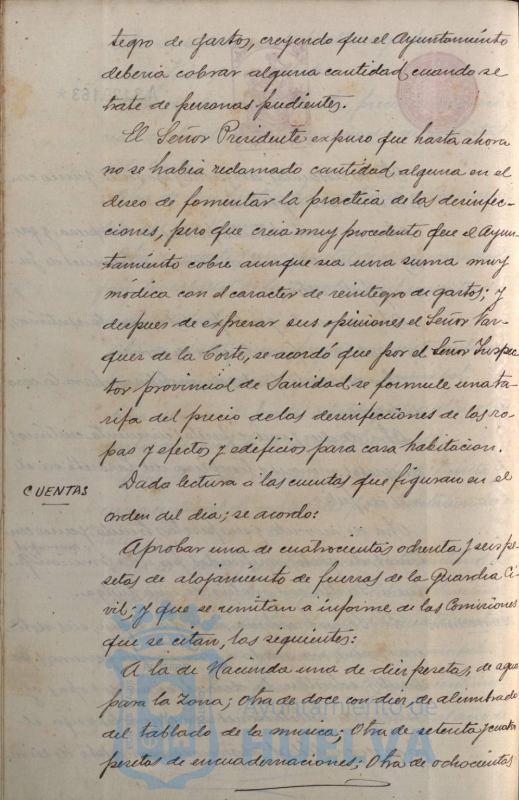 tegro de gastos, creyendo que el Ayuntamiento
deberia cobrar alguna cantidad cuando se
trate de personas pudientes.
El Señor Presidente expuso que hasta ahora
no se habia reclamado cantidad alguna en el
deseo de fomentar la practica de las desinfec-
ciones, pero que creia muy procedente que el Ayun-
tamiento cobre aunque sea una suma muy
módica con el caracter de reintegro de gastos; y
despues de expresar sus opiniones el Señor Vaz-
quez de la Corte, se acordó que por el Señor Inspec
tor provincial de Sanidad se formule una ta-
rifa del precio de las desinfecciones de las ro-
pas y efectos y edificios para casa habitacion.
CUENTAS
Dada lectura á las cuentas que figuran en el
orden del dia; se acordo:
Aprobar una de cuatrocientas ochenta y seis pe-
setas de alojamiento de fuerzas de la Guardia Ci-
vil; y que se remitan a informe de las Comisiones
que se citan, las siguientes:
A la de Hacienda una de diez pesetas, de agua
para la Zona; Otra de doce con diez, de alumbrado
del tablado de la musica; Otra de setenta y cuatro
pesetas de encuadernaciones; Otra de ochocientas
Ayuntamiento de
HUELVA